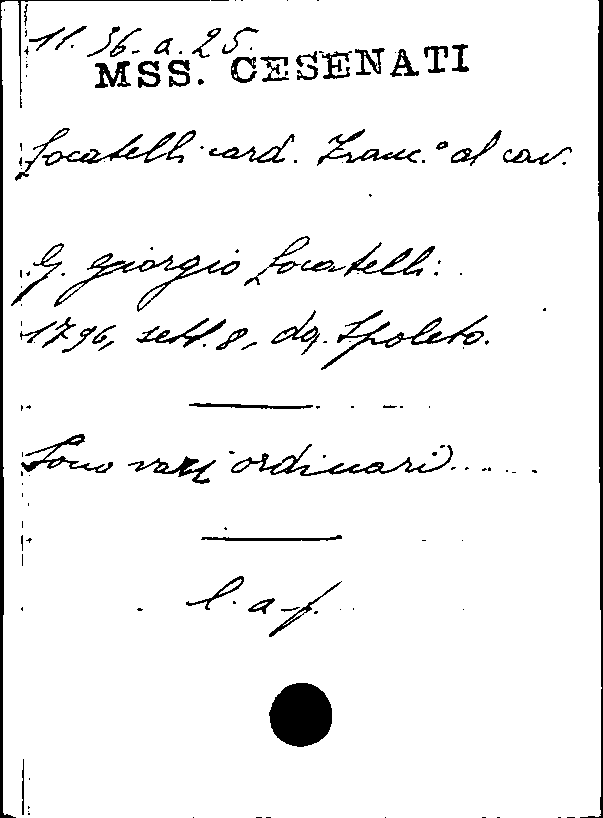 11. 36. a. 25.
MSS. CESENATI
Locatelli card. Franc.° al cav.
G. Giorgio Locatelli:
1796, sett. 8, da Spoleto.
Sono vari ordinari.....
l. a. f.